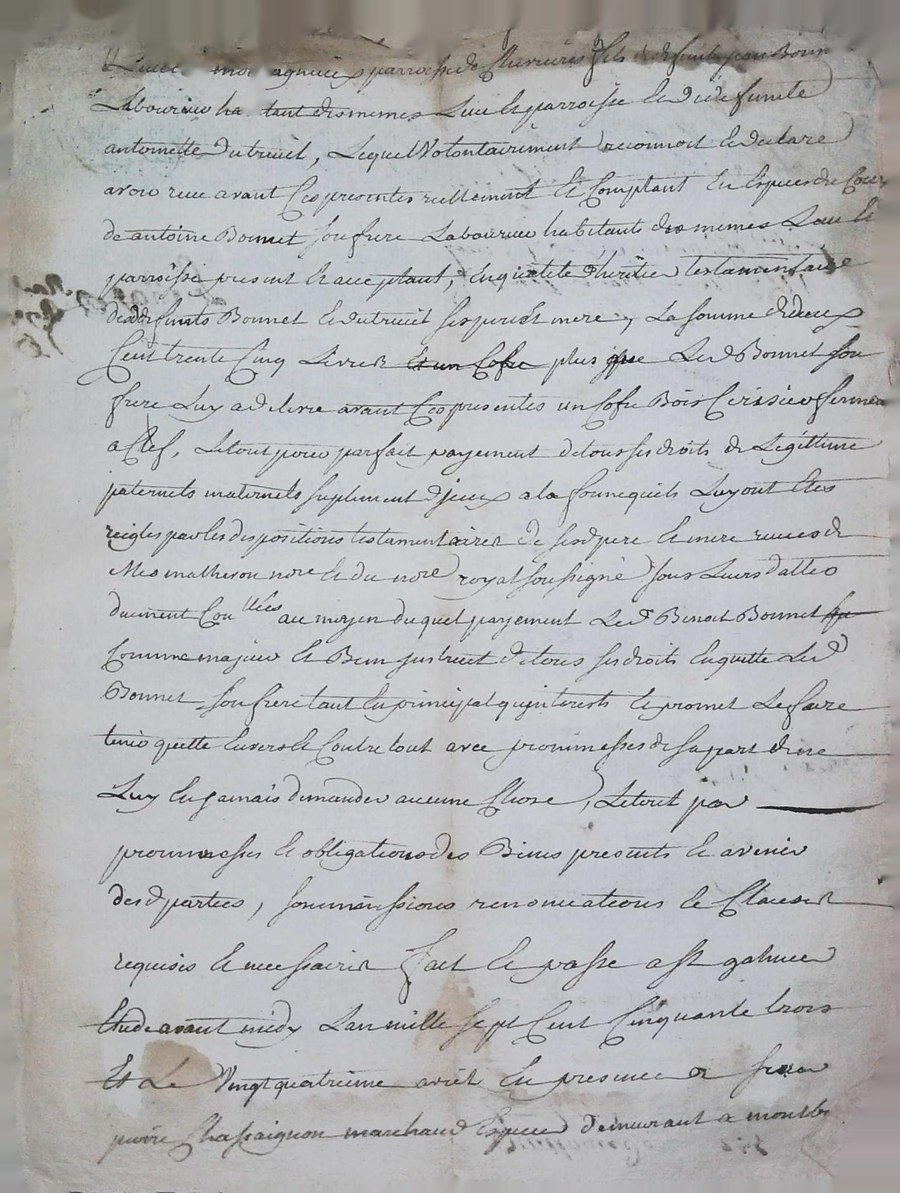 parroisse de Chevrieres fils de defunts jean Bonn
Laboureur ha tant des memes Lieu et parroisse et de defunte
antoinette Dutreuil, Lequel Volontairement reconnoit et declare
avoir receu avant Ces presentes reellement et Comptant En Especes de Cours
de antoine Bonnet son frere Laboureur habitants des memes Lieu et
parroisse present et acceptant, En qualité d'heritier testamentaire
desd defunts Bonnet et dutreuil ses pere et mere, La somme de deux
Cent trente Cinq Livres et un Cofre plus que Led Bonnet son
frere Luy a delivré avant Ces presentes un Cofre Bois Cerisier fermen
a Clef, Le tout pour parfait payement de tous ses droits de Legittime
paternels maternels suplement d'jceux a la forme quils Luy ont Etés
reigles par les dispositions testamentaires de sesd pere et mere receues de
Mes matheron nore et du nore royal soussigné sous Leurs dattes
duement Conllées au moyen duquel payement Led Sr Benoit Bonnet
Comme majeur et Bien jnstruit de tous ses droits En quitte Led
Bonnet son frere tant En principal qu'interests et promet Le faire
tenir quitte Envers et Contre tout avec prommesses de sa part de ne
Luy En jamais demander aucune Chose, Le tout par
prommesses et obligations des Biens presents et avenir
desd parties, sommissions renonciations et Clauses
requises et necessaires fait et passé a st galmier
Etude avant midy L'an mille sept Cent Cinquante trois
Et Le Vingt quatrieme avril En presence de sieur
pierre Chassaignon marchand Epicier demeurant a montb